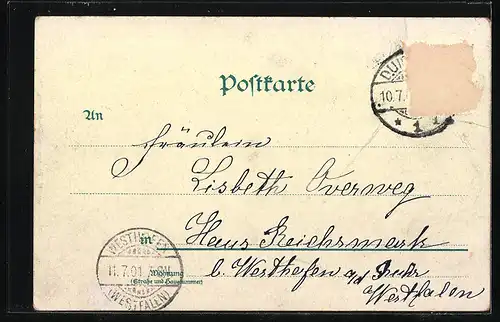 Postkarte
DUI
10.7.
* 1 1
An
Fräulein
Lisbeth Overweg
in Haus Reichsmark
b. Westhofen a/d Ruhr
Westfalen
WESTHOFEN
11.7.01
(WESTFALEN)
Wohnung
(Straße und Hausnummer)